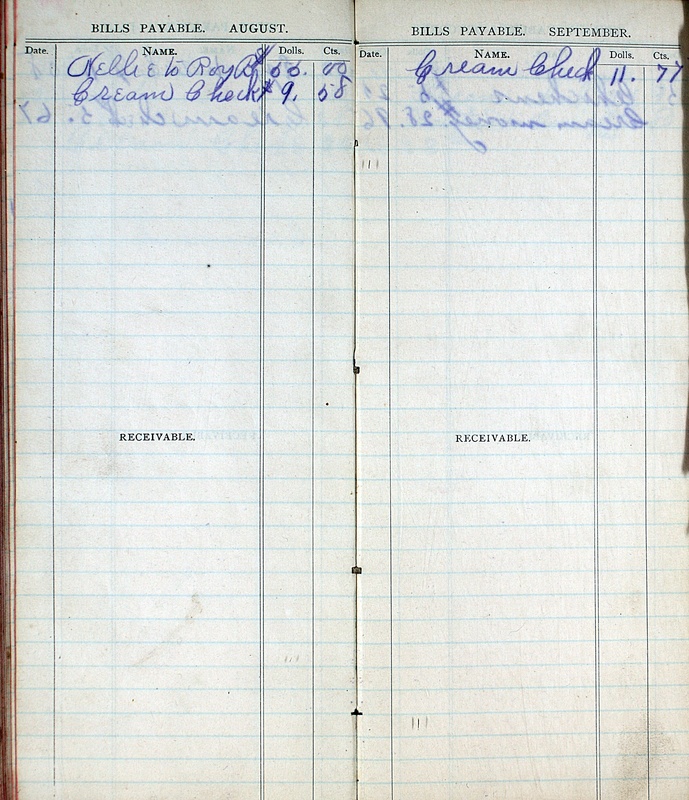 BILLS PAYABLE. AUGUST.
Date. NAME. Dolls. Cts.
Nellie to Roy
Cream Check $ 9. 58
RECEIVABLE.
BILLS PAYABLE. SEPTEMBER.
Date. NAME. Dolls. Cts.
Cream Check 11. 77
RECEIVABLE.